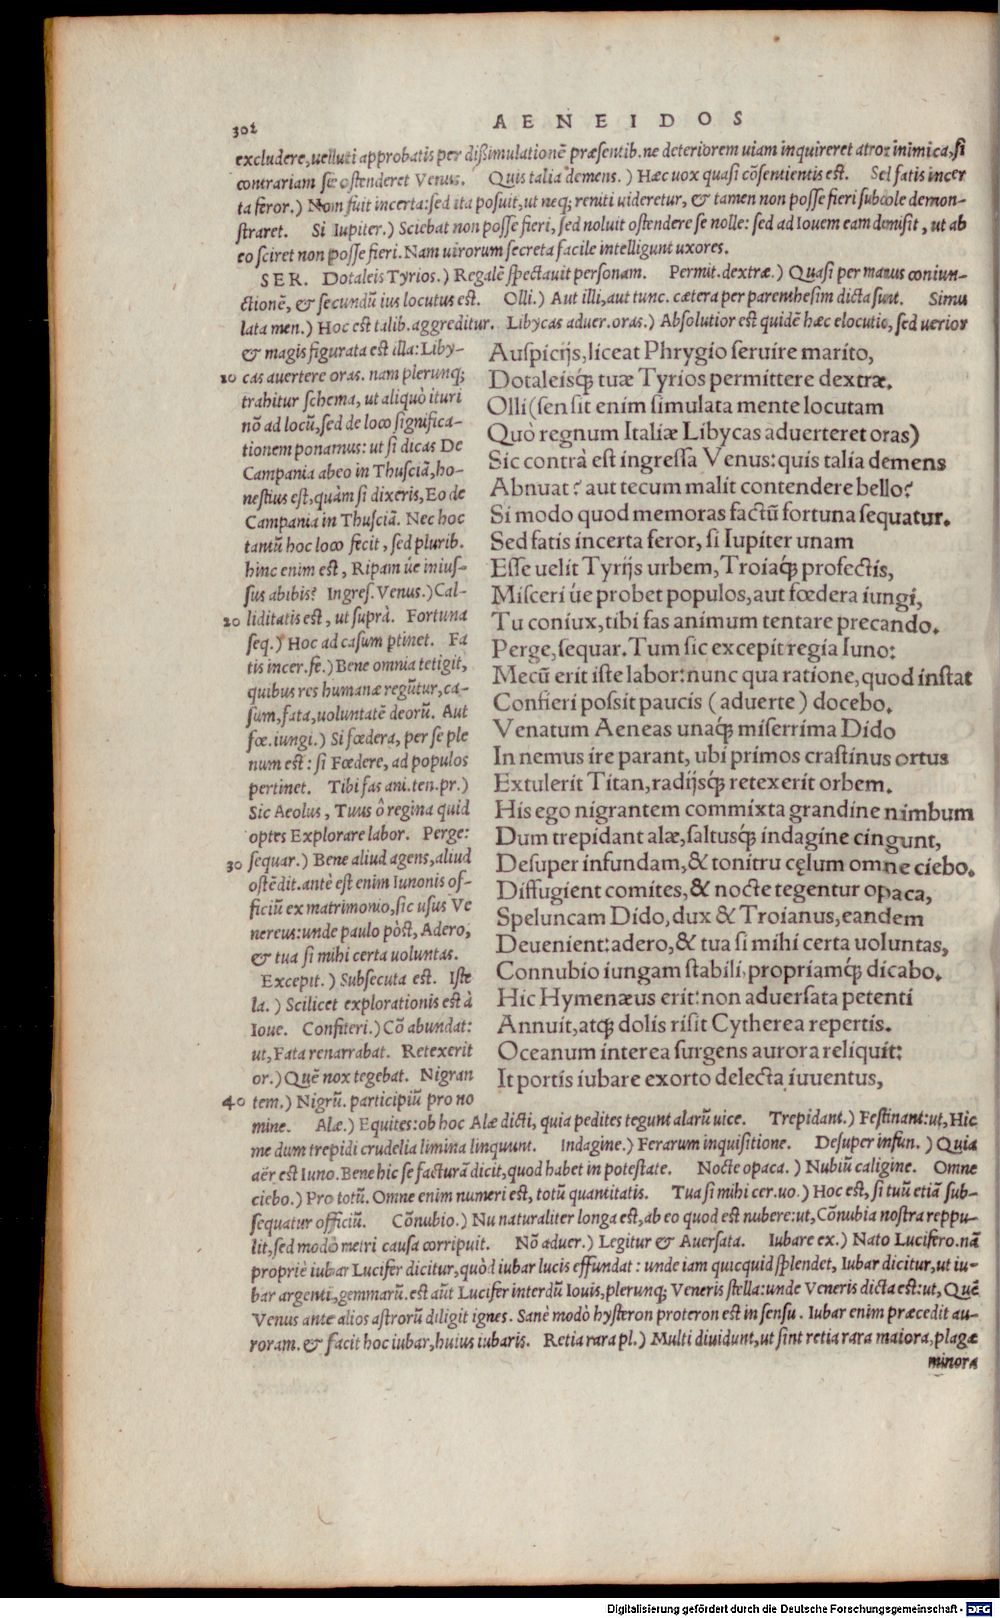 302
AENEIDOS
excludere, uelluti approbatis per dißimulationē præsentib. ne deteriorem uiam inquireret atrox inimica, si
contrariam se ostenderet Venus. Quis talia demens.) Hæc uox quasi cōsentientis est. Sed fatis incer
ta feror.) Nom fuit incerta: sed ita posuit, ut neq; reniti uideretur, & tamen non posse fieri subdole demon-
straret. Si Iupiter.) Sciebat non posse fieri, sed noluit ostendere se nolle: sed ad Iouem eam demisit, ut ab
eo sciret non posse fieri. Nam uirorum secreta facile intelligunt uxores.
SER. Dotaleis Tyrios.) Regalē spectauit personam. Permit. dextræ.) Quasi per manus coniun-
ctionē, & secundū ius locutus est. Olli.) Aut illi, aut tunc. cætera per parenthesim dicta sunt. Simu
lata men.) Hoc est talib. aggreditur. Libycas aduer. oras.) Absolutior est quidē hæc elocutio, sed uerior
& magis figurata est illa: Liby-
10 cas auertere oras. nam plerunq;
trahitur schema, ut aliquò ituri
nō ad locū, sed de loco significa-
tionem ponamus: ut si dicas De
Campania abeo in Thusciā, ho-
nestius est, quàm si dixeris, Eo de
Campania in Thusciā. Nec hoc
tantū hoc loco fecit, sed plurib.
hinc enim est, Ripam úe inius-
sus abibis? Ingres. Venus.) Cal-
20 liditatis est, ut suprà. Fortuna
seq.) Hoc ad casum ptinet. Fa
tis incer. fe.) Bene omnia tetigit,
quibus res humanæ regūtur, ca-
sum, fata, uoluntatē deorū. Aut
fœ. iungi.) Si fœdera, per se ple
num est: si Fœdere, ad populos
pertinet. Tibi fas ani. ten. pr.)
Sic Aeolus, Tuus ô regina quid
optes Explorare labor. Perge:
30 sequar.) Bene aliud agens, aliud
ostēdit. antè est enim Iunonis of-
ficiū ex matrimonio, sic usus Ve
nereus: unde paulo pòst, Adero,
& tua si mihi certa uoluntas.
Excepit.) Subsecuta est. Iste
la.) Scilicet explorationis est à
Ioue. Confiteri.) Cō abundat:
ut, Fata renarrabat. Retexerit
or.) Quē nox tegebat. Nigran
40 tem.) Nigrū. participiū pro no
Auspicijs, liceat Phrygio seruire marito,
Dotaleisq́; tuæ Tyrios permittere dextræ.
Olli (sensit enim simulata mente locutam
Quò regnum Italiæ Libycas aduerteret oras)
Sic contrà est ingressa Venus: quis talia demens
Abnuat? aut tecum malit contendere bello?
Si modo quod memoras factū fortuna sequatur.
Sed fatis incerta feror, si Iupiter unam
Esse uelit Tyrijs urbem, Troiaq́; profectis,
Misceri úe probet populos, aut fœdera iungi,
Tu coniux, tibi fas animum tentare precando.
Perge, sequar. Tum sic excepit regia Iuno:
Mecū erit iste labor: nunc qua ratione, quod instat
Confieri possit paucis (aduerte) docebo.
Venatum Aeneas unaq́; miserrima Dido
In nemus ire parant, ubi primos crastinus ortus
Extulerit Titan, radijsq́; retexerit orbem.
His ego nigrantem commixta grandine nimbum
Dum trepidant alæ, saltusq́; indagine cingunt,
Desuper infundam, & tonitru cęlum omne ciebo.
Diffugient comites, & nocte tegentur opaca,
Speluncam Dido, dux & Troianus, eandem
Deuenient: adero, & tua si mihi certa uoluntas,
Connubio iungam stabili, propriamq́; dicabo.
Hic Hymenæus erit: non aduersata petenti
Annuit, atq; dolis risit Cytherea repertis.
Oceanum interea surgens aurora reliquit:
It portis iubare exorto delecta iuuentus,
mine. Alæ.) Equites: ob hoc Alæ dicti, quia pedites tegunt alarū uice. Trepidant.) Festinant: ut, Hic
me dum trepidi crudelia limina linquunt. Indagine.) Ferarum inquisitione. Desuper infun.) Quia
aër est Iuno. Bene hic se facturā dicit, quod habet in potestate. Nocte opaca.) Nubiū caligine. Omne
ciebo.) Pro totū. Omne enim numeri est, totū quantitatis. Tua si mihi cer. uo.) Hoc est, si tuū etiā sub-
sequatur officiū. Cōnubio.) Nu naturaliter longa est, ab eo quod est nubere: ut, Cōnubia nostra reppu-
lit, sed modò metri causa corripuit. Nō aduer.) Legitur & Auersata. Iubare ex.) Nato Lucifero. nā
propriè iubar Lucifer dicitur, quòd iubar lucis effundat: unde iam quicquid splendet, Iubar dicitur, ut iu-
bar argenti, gemmarū. est aūt Lucifer interdū Iouis, plerunq; Veneris stella: unde Veneris dicta est: ut, Quē
Venus ante alios astrorū diligit ignes. Sanè modò hysteron proteron est in sensu. Iubar enim præcedit au-
roram. & facit hoc iubar, huius iubaris. Retia rara pl.) Multi diuidunt, ut sint retia rara maiora, plagæ
minora
Digitalisierung gefördert durch die Deutsche Forschungsgemeinschaft - DFG